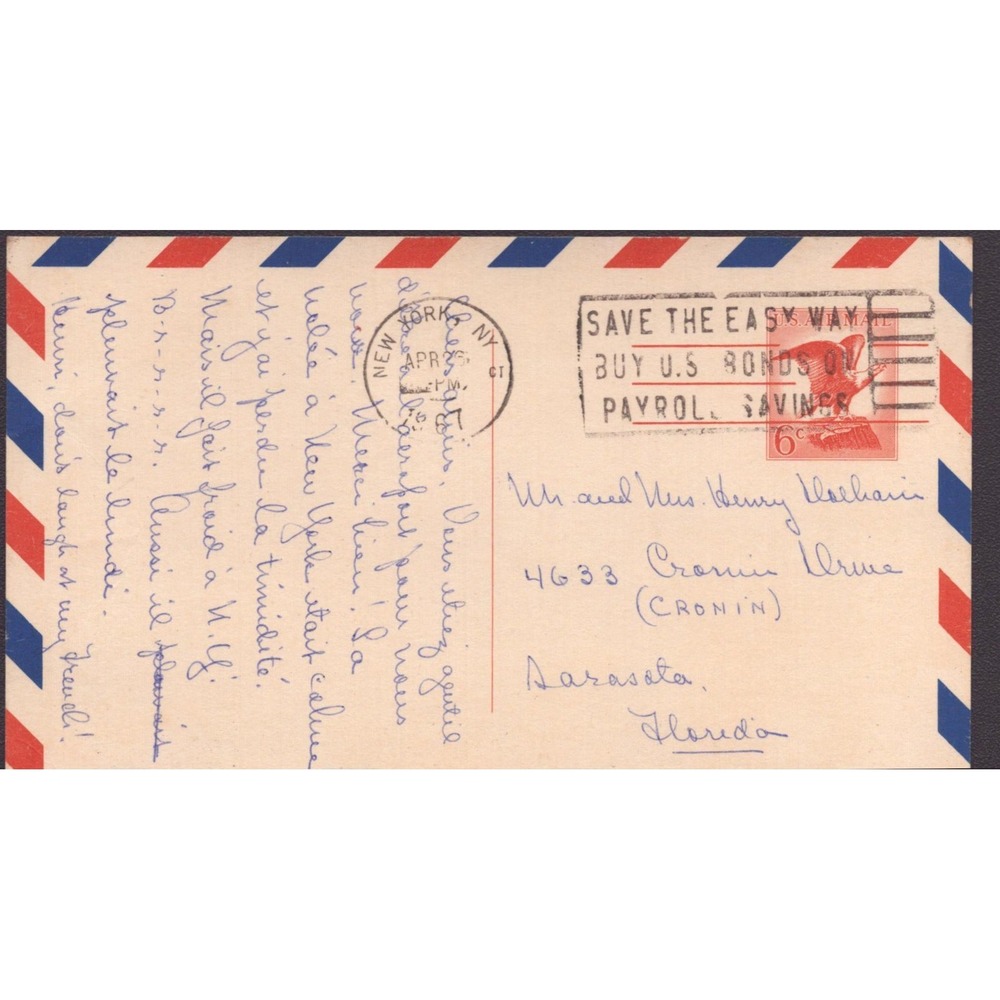 Chers amis, Vous étiez gentil
d'être à l'aéroport pour nous
voir. Merci bien! La
volée à New York était calme
et j'ai perdu la timidité.
Mais il fait froid à N.Y.
B-r-r-r-r. Aussi il pleuvait
pleuvait le lundi.
Henri, dois laugh at my French!
NEW YORK, NY
APR 26
PM
CT
SAVE THE EASY WAY
BUY U.S. BONDS ON
PAYROLL SAVINGS
U.S. AIR MAIL
6c
Mr and Mrs. Henry
4633 Cronin Drive
(CRONIN)
Sarasota,
Florida